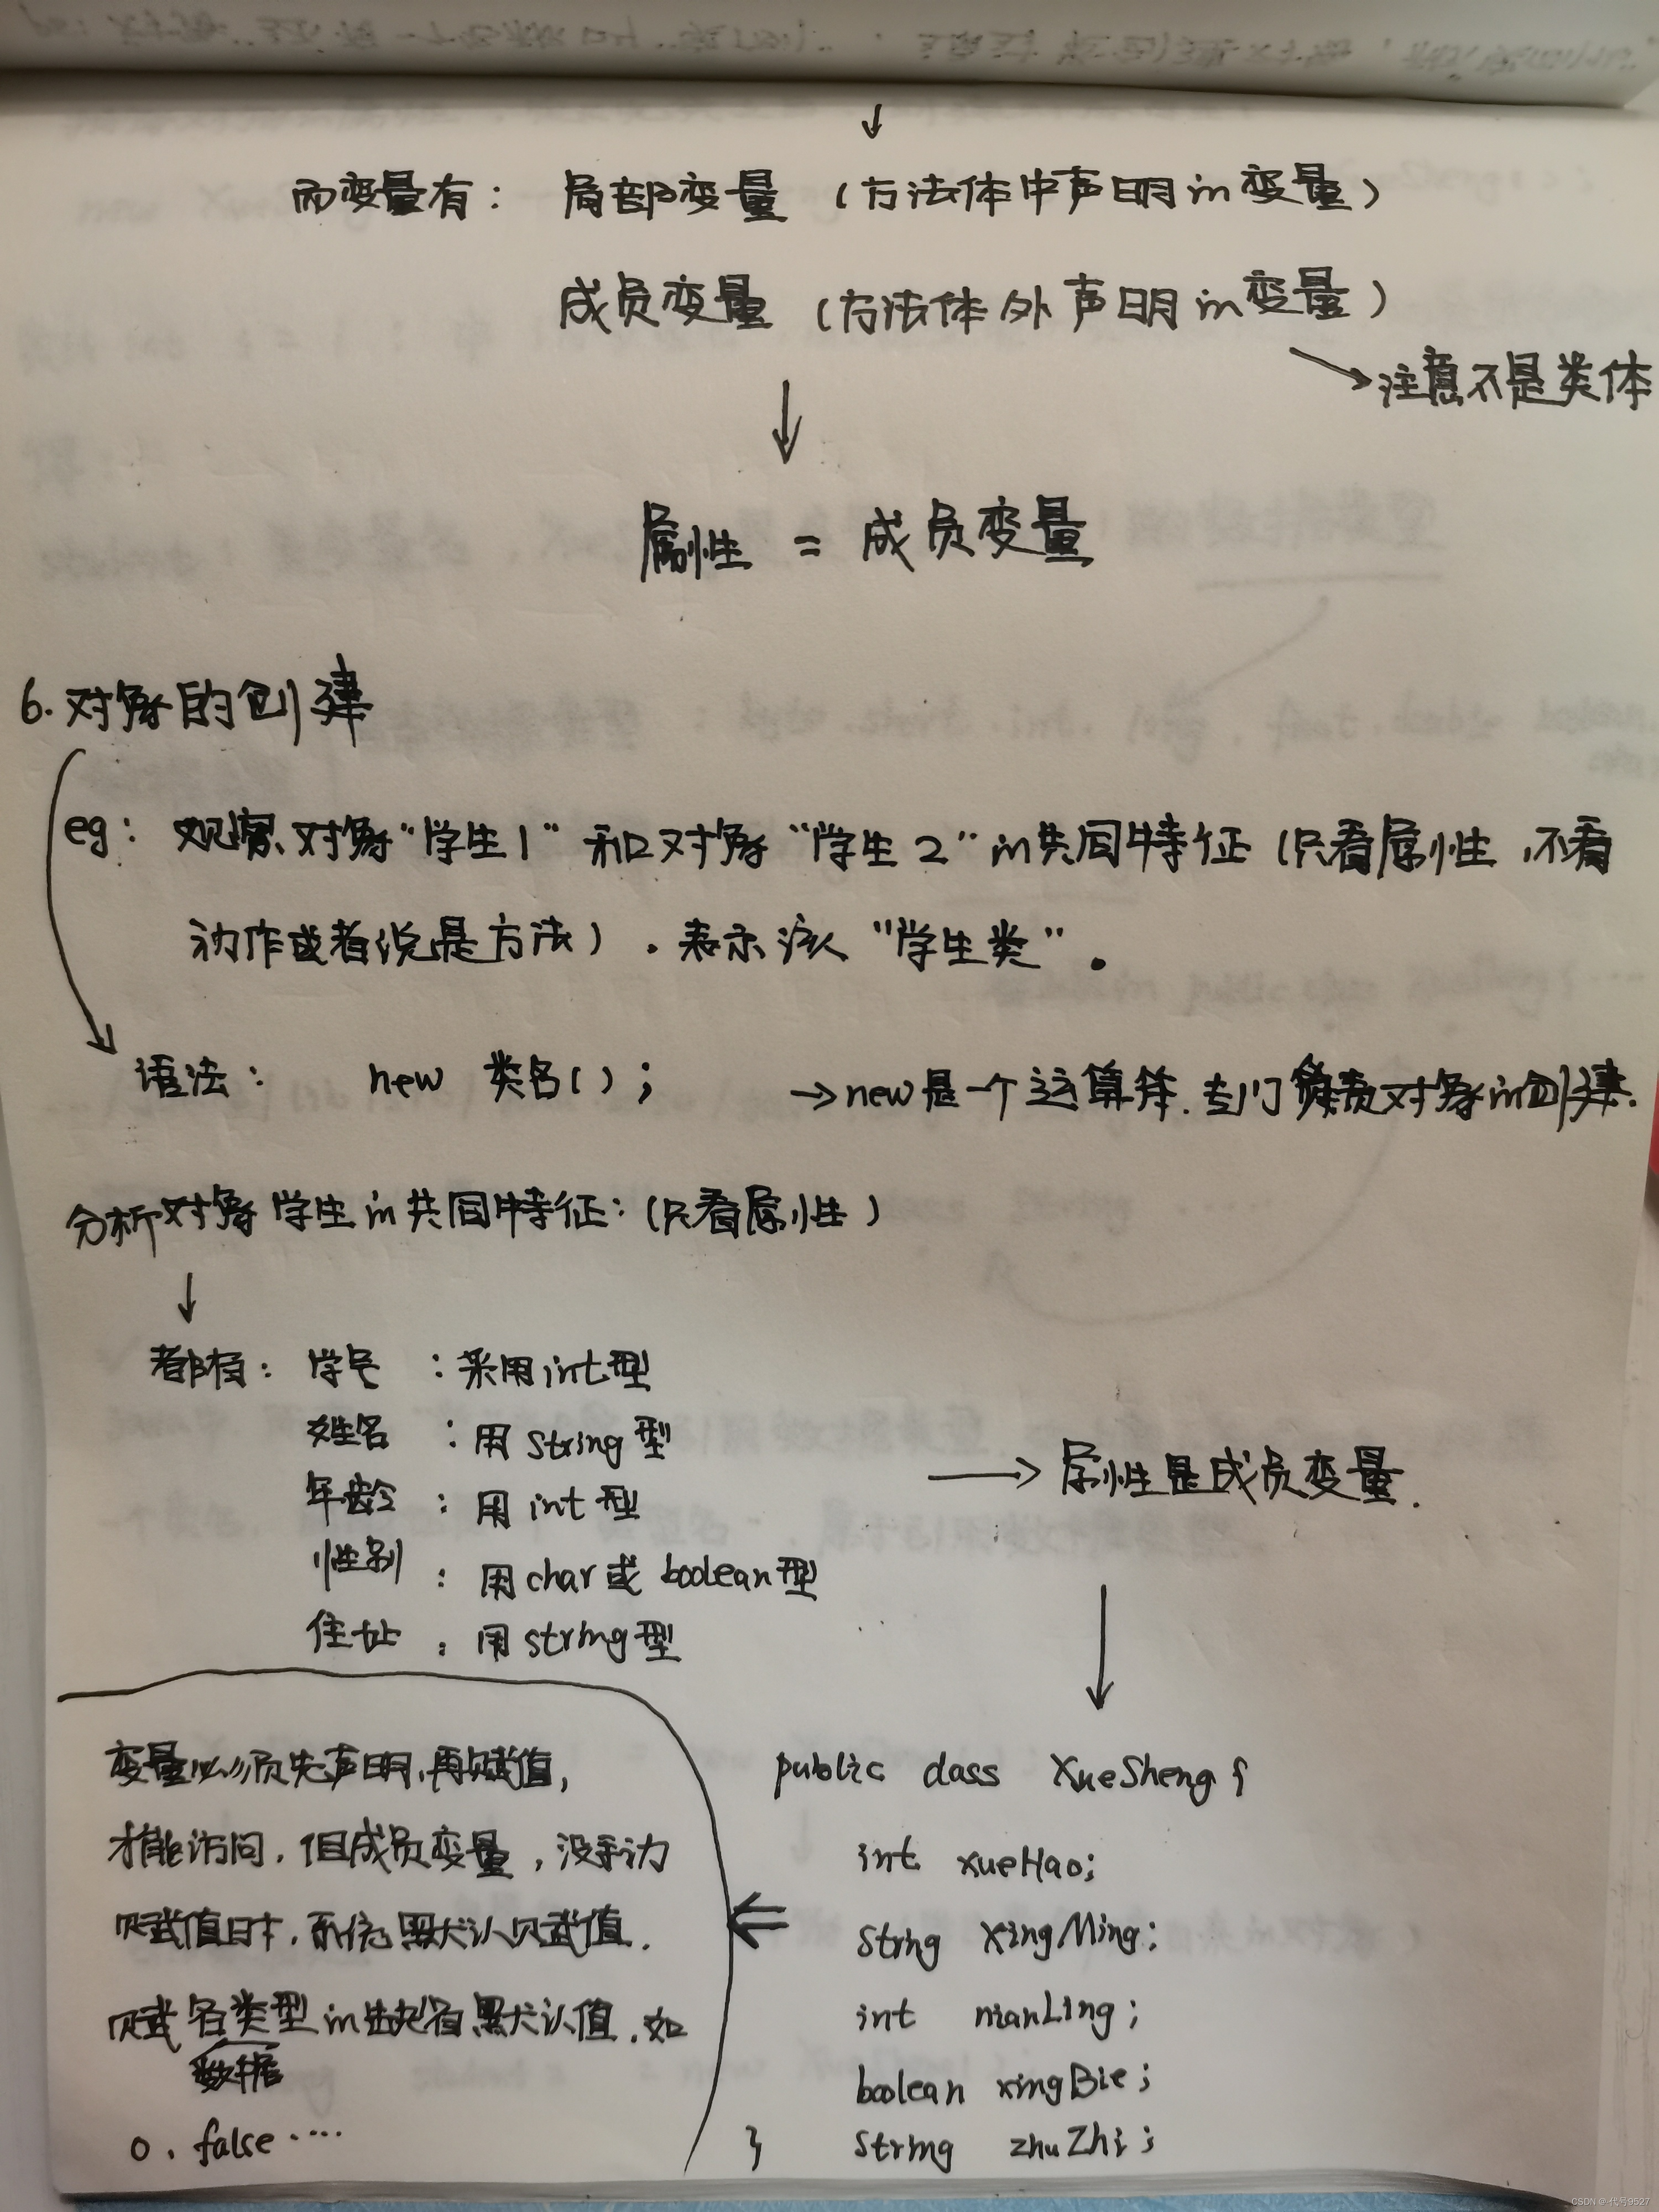 而变量有： 局部变量 （方法体中声明in变量）
成员变量 （方法体外声明in变量）
注意不是类体
属性 = 成员变量
6. 对象的创建
eg： 观察对象“学生1”和对象“学生2”in共同特征（只看属性，不看
动作或者说是方法）. 表示该“学生类”。
语法： new 类名()； →new是一个运算符. 专门负责对象in创建.
分析对象学生in共同特征：（只看属性）
都有： 学号 ：采用int型
姓名 ：用string型
年龄 ：用int型
性别 ：用char或boolean型
住址 ：用string型
→ 属性是成员变量.
变量必须先声明,再赋值,
才能访问. 但成员变量, 没手动
赋值时, 系统默认赋值.
赋各类型in
数据
有默认值. 如
0. false ....
public class XueSheng {
int xueHao;
String XingMing;
int nianLing;
boolean xingBie;
} String zhuZhi;
CSDN @代号9527